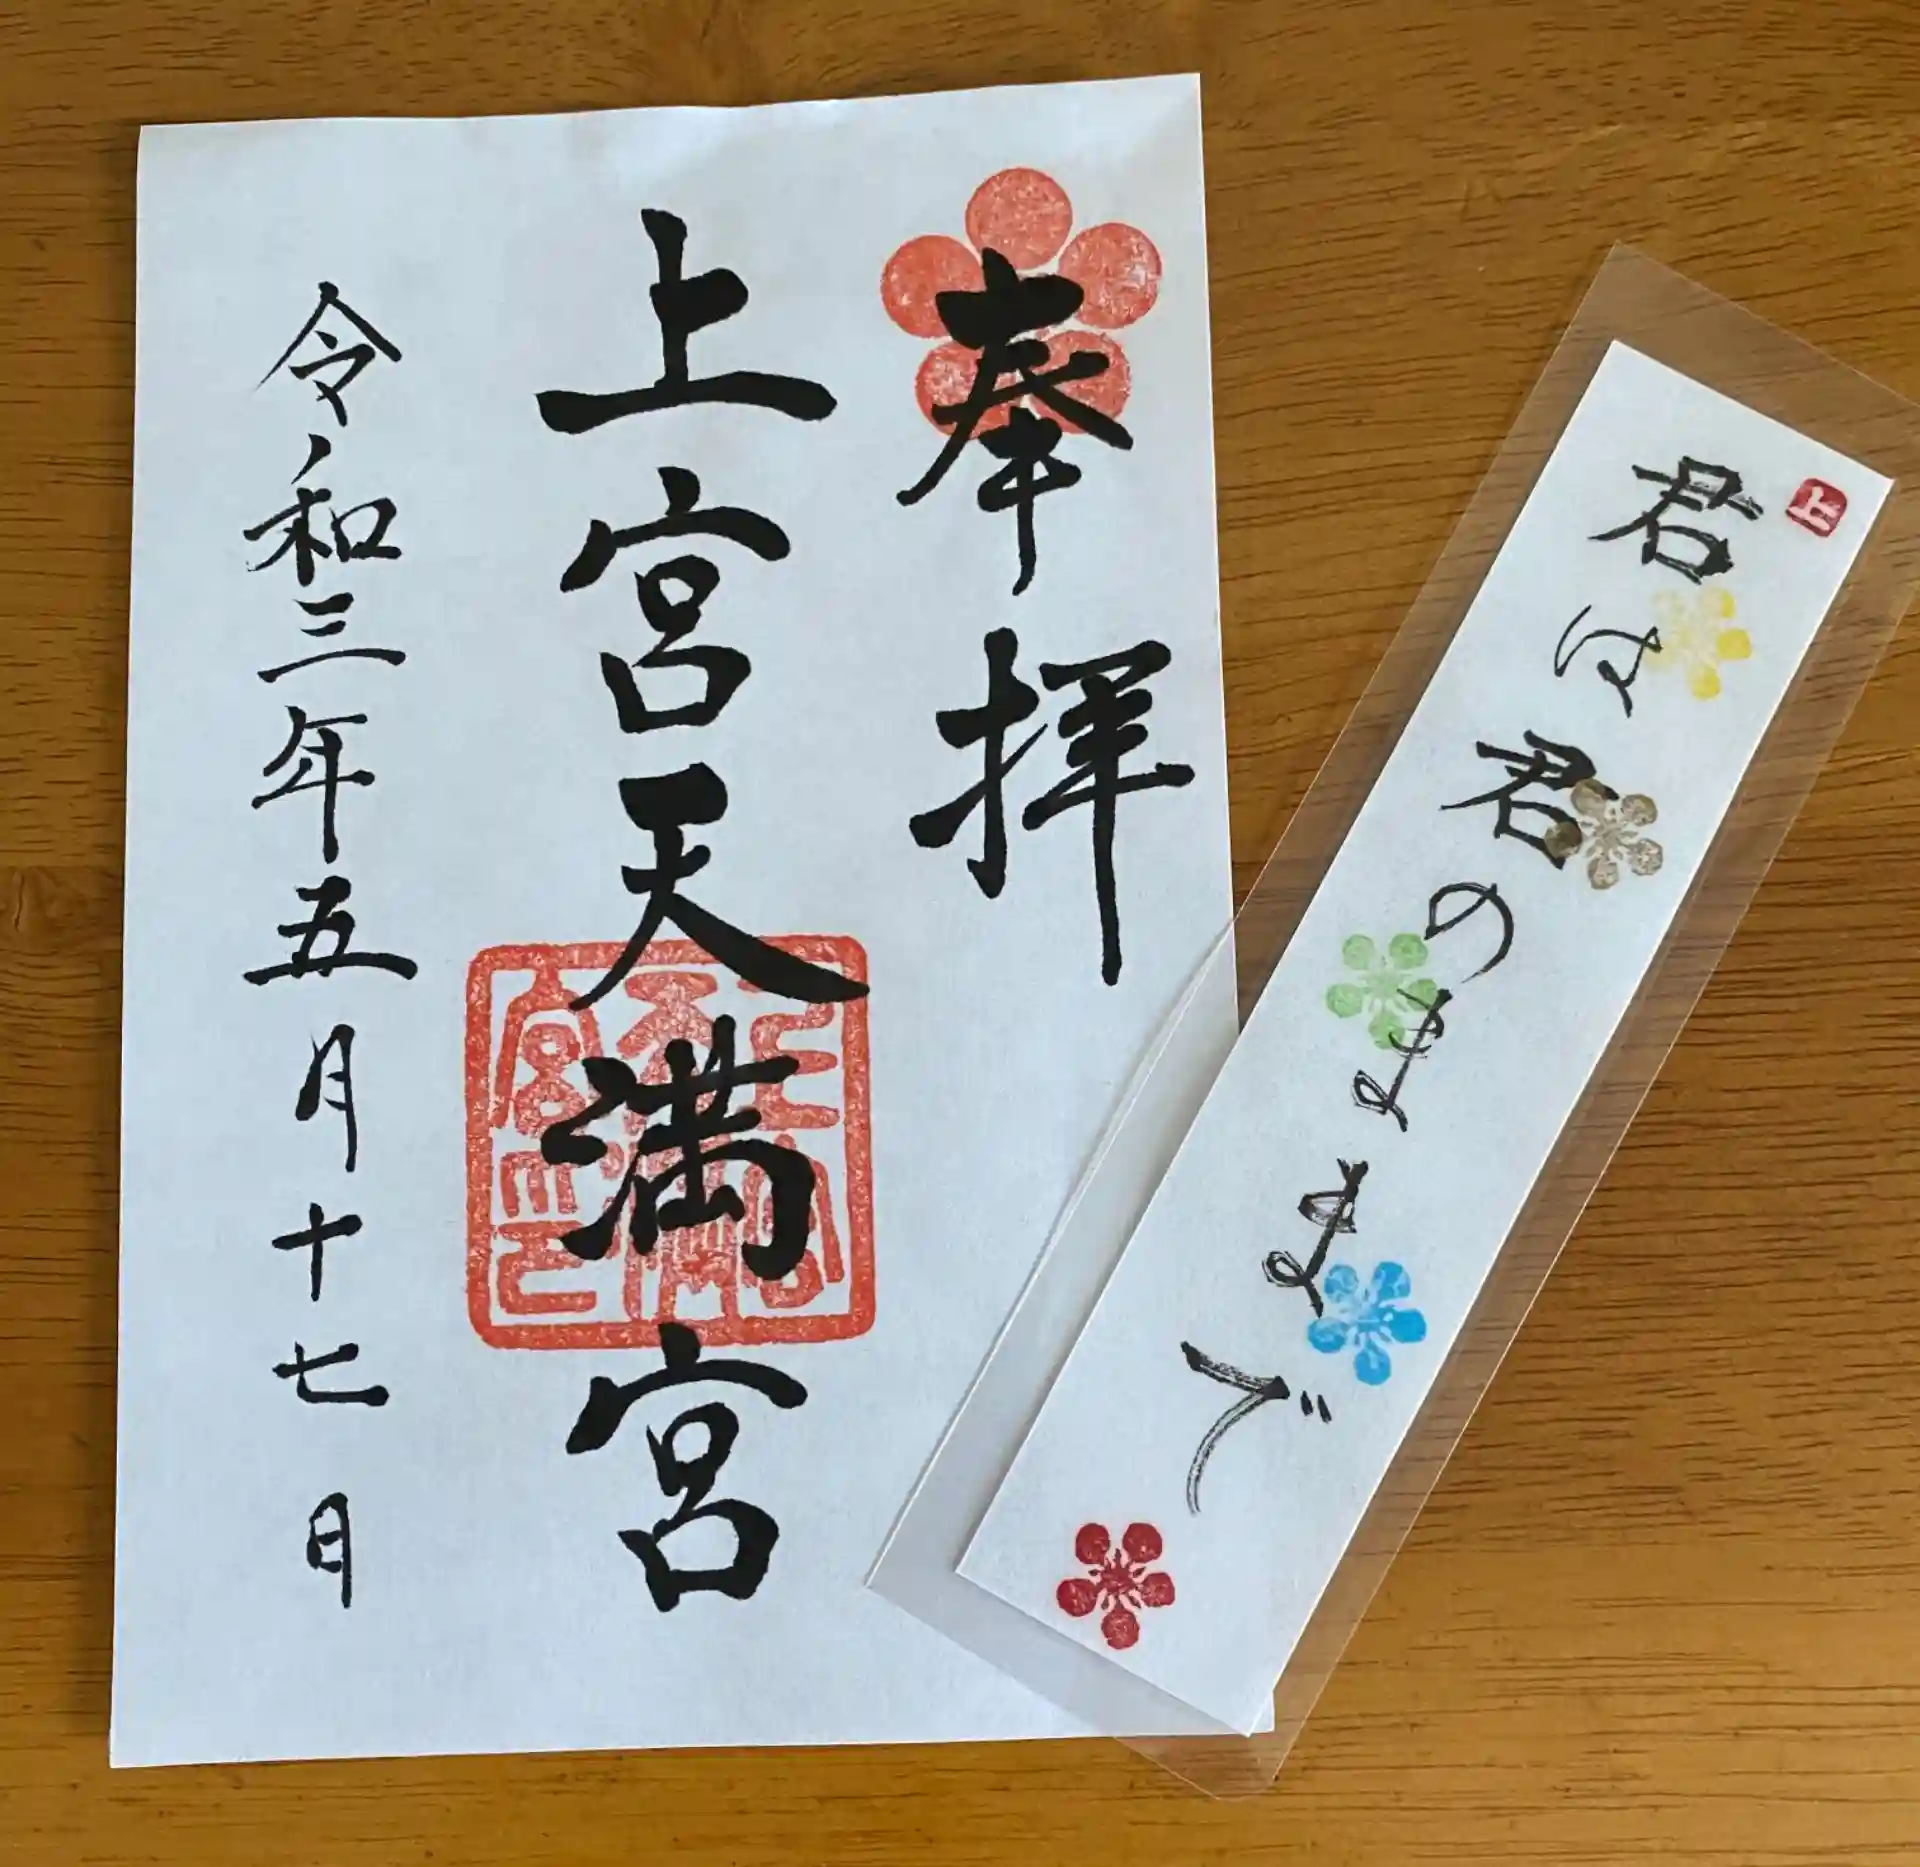 奉拝
上宮天満宮
令和三年五月十七日
上
君は君のままで